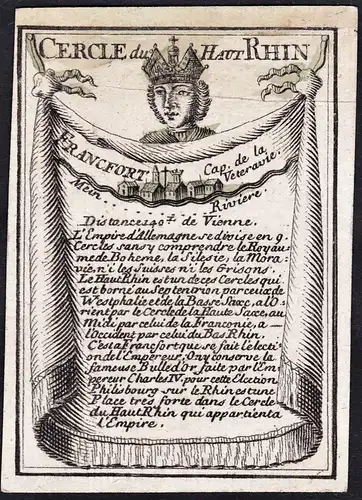 CERCLE du HAUT RHIN
FRANCFORT Cap. de la
Veteravie.
Mein Riviere.
Distance 140 l. de Vienne.
L'Empire d'Allemagne se divise en 9.
Cercles sans y comprendre le Royau-
me de Boheme, la Silesie, la Mora-
vie, n'i les Suisses n'i les Grisons.
Le Haut Rhin est un de ces Cercles qui
est borné au Septentrion par celui de
Westphalie et de la Basse Saxe, a l'O-
rient par le Cercle de la Haute Saxe, au
Midi par celui de la Franconie, a
l'Occident par celui du Bas Rhin.
C'est a Francfort que se fait l'electi-
on de l'Empereur, On y conserve la
fameuse Bulle d'Or faite par l'Em-
pereur Charles IV. pour cette Election
Philisbourg sur le Rhin est une
Place tres forte dans le Cercle
du Haut Rhin qui appartient a
l'Empire.